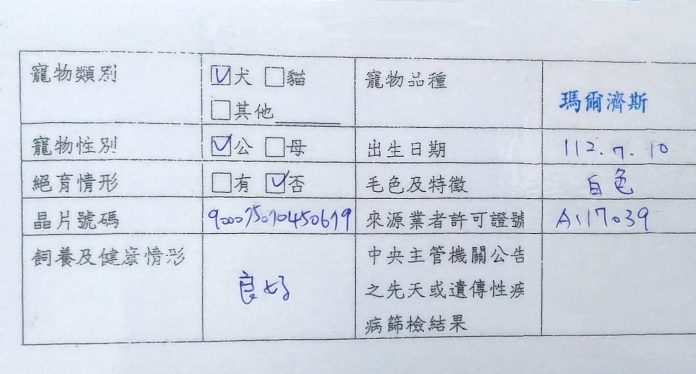 寵物類別 ☑犬 ☐貓 寵物品種 瑪爾濟斯
☐其他
寵物性別 ☑公 ☐母 出生日期 112.7.10
絕育情形 ☐有 ☑否 毛色及特徵 白色
晶片號碼 900075010450619 來源業者許可證號 A117039
飼養及健康情形 良好 中央主管機關公告
之先天或遺傳性疾
病篩檢結果